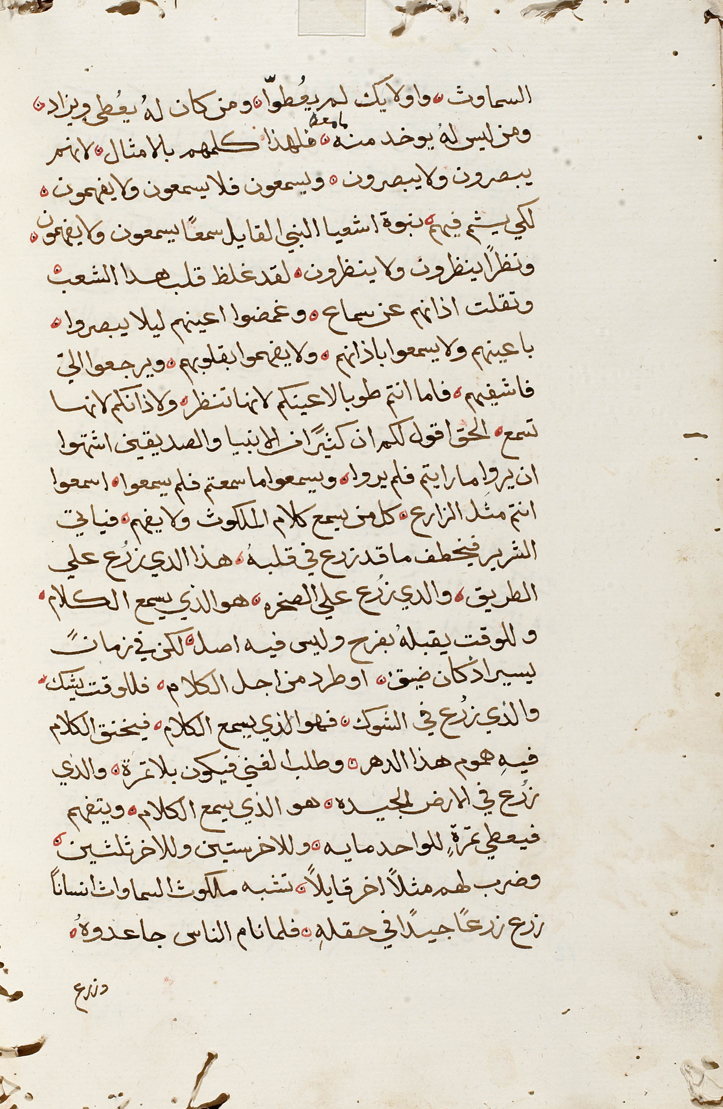 السماوث واولايك لم يعُطوّا ومن كان لهُ يعُطي ويزاد
ومن ليس لهُ يوخد منه مامعه فلهذا كلمهم بالامثال لانهم
يبصرون ولا يبصرون ويسمعون فلا يسمعون ولا يفهمون
لكي يتم فيهم نبوة اشعيا النبي القايل سمعاً يسمعون ولا يفهمون
ونظراً ينظرون ولا ينظرون لقد غلظ قلب هدا الشعب
وتقلت اذانهم عن سماع وغمضوا اعينهم ليلا يبصروا
باعينهم ولا يسمعوا باذانهم ولا يفهموا بقلوبهم ويرجعوا اليّ
فاشفيهم فاما انتم طوبا لاعينكم لانها تنظر ولاذانكم لانها
تسمع الحق اقول لكم ان كثيراً من الانبيا والصديقين اشتهوا
ان يروا ما رايتم فلم يروا ويسمعوا ما سمعتم فلم يسمعوا اسمعوا
انتم مثل الزارع كل من يسمع كلام الملكوث ولا يفهم فياتي
الشرير فيخطف ما قد زرع في قلبهُ هذا الدي زرُع علي
الطريق والدي زرُع علي الصخره هو الذي يسمع الكلام
وللوقت يقبلهُ بفرح وليس فيه اصل لكن في زمانً
يسير اذ كان ضيق او طرد من اجل الكلام فللوقت يشك
والذي زرُع في الشوك فهو الذي يسمع الكلام فيخنق الكلام
فيهِ هموم هذا الدهر وطلب الغني فيكون بلا ثمرة والذي
زرُع في الارض الجيده هو الذي يسمع الكلام ويتفهم
فيعطي ثمرةٍ للواحد مايه وللاخر ستين وللاخر ثلثين
وضرب لهم مثلاً اخر قايلاً تشبه ملكوث السماواث انساناً
زرع زرعاً جيداً في حقلهِ فلما نام الناس جا عدوهُ
وزرع